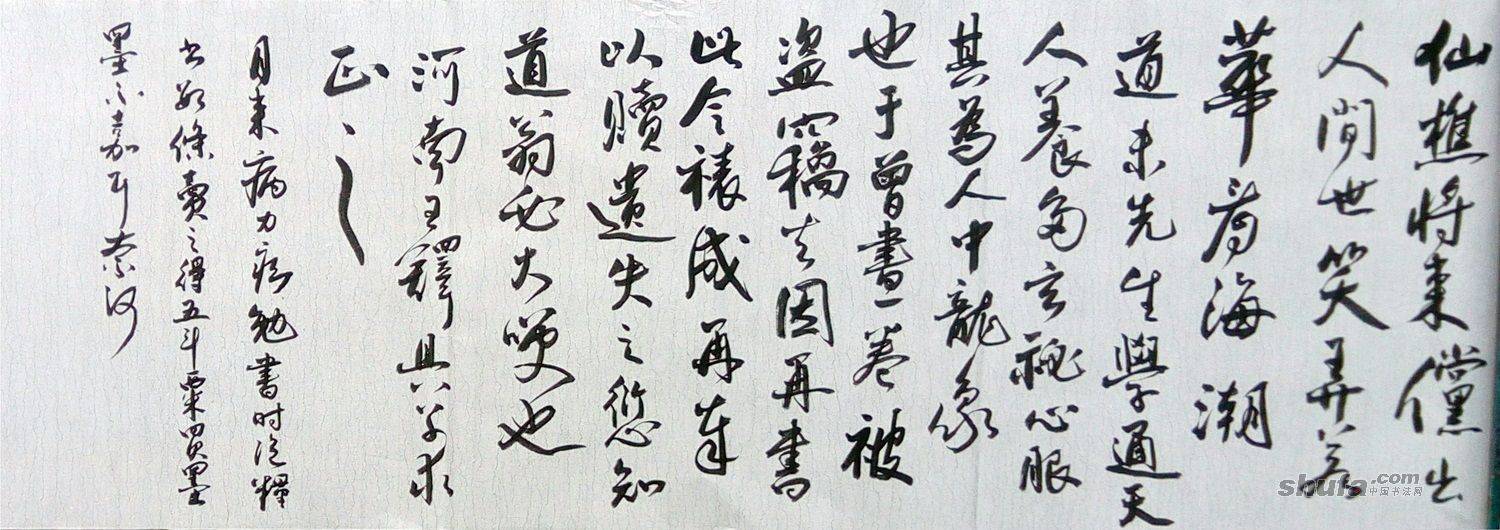 仙樵將來儻出
人間世笑弄蓬
華看海潮
道未先生學通天
人養多玄魂心服
其為人中龍象
也于曾書一卷被
盜竊去因再書
此令裱成再奉
以贖遺失之愆知
道翁必大哂也
河南王四驛具草求
正、
月來病力疾勉書时訖糧
書數條賣之得五斗粟買墨
墨不嘉耳奈何
shufa.com
中国书法网